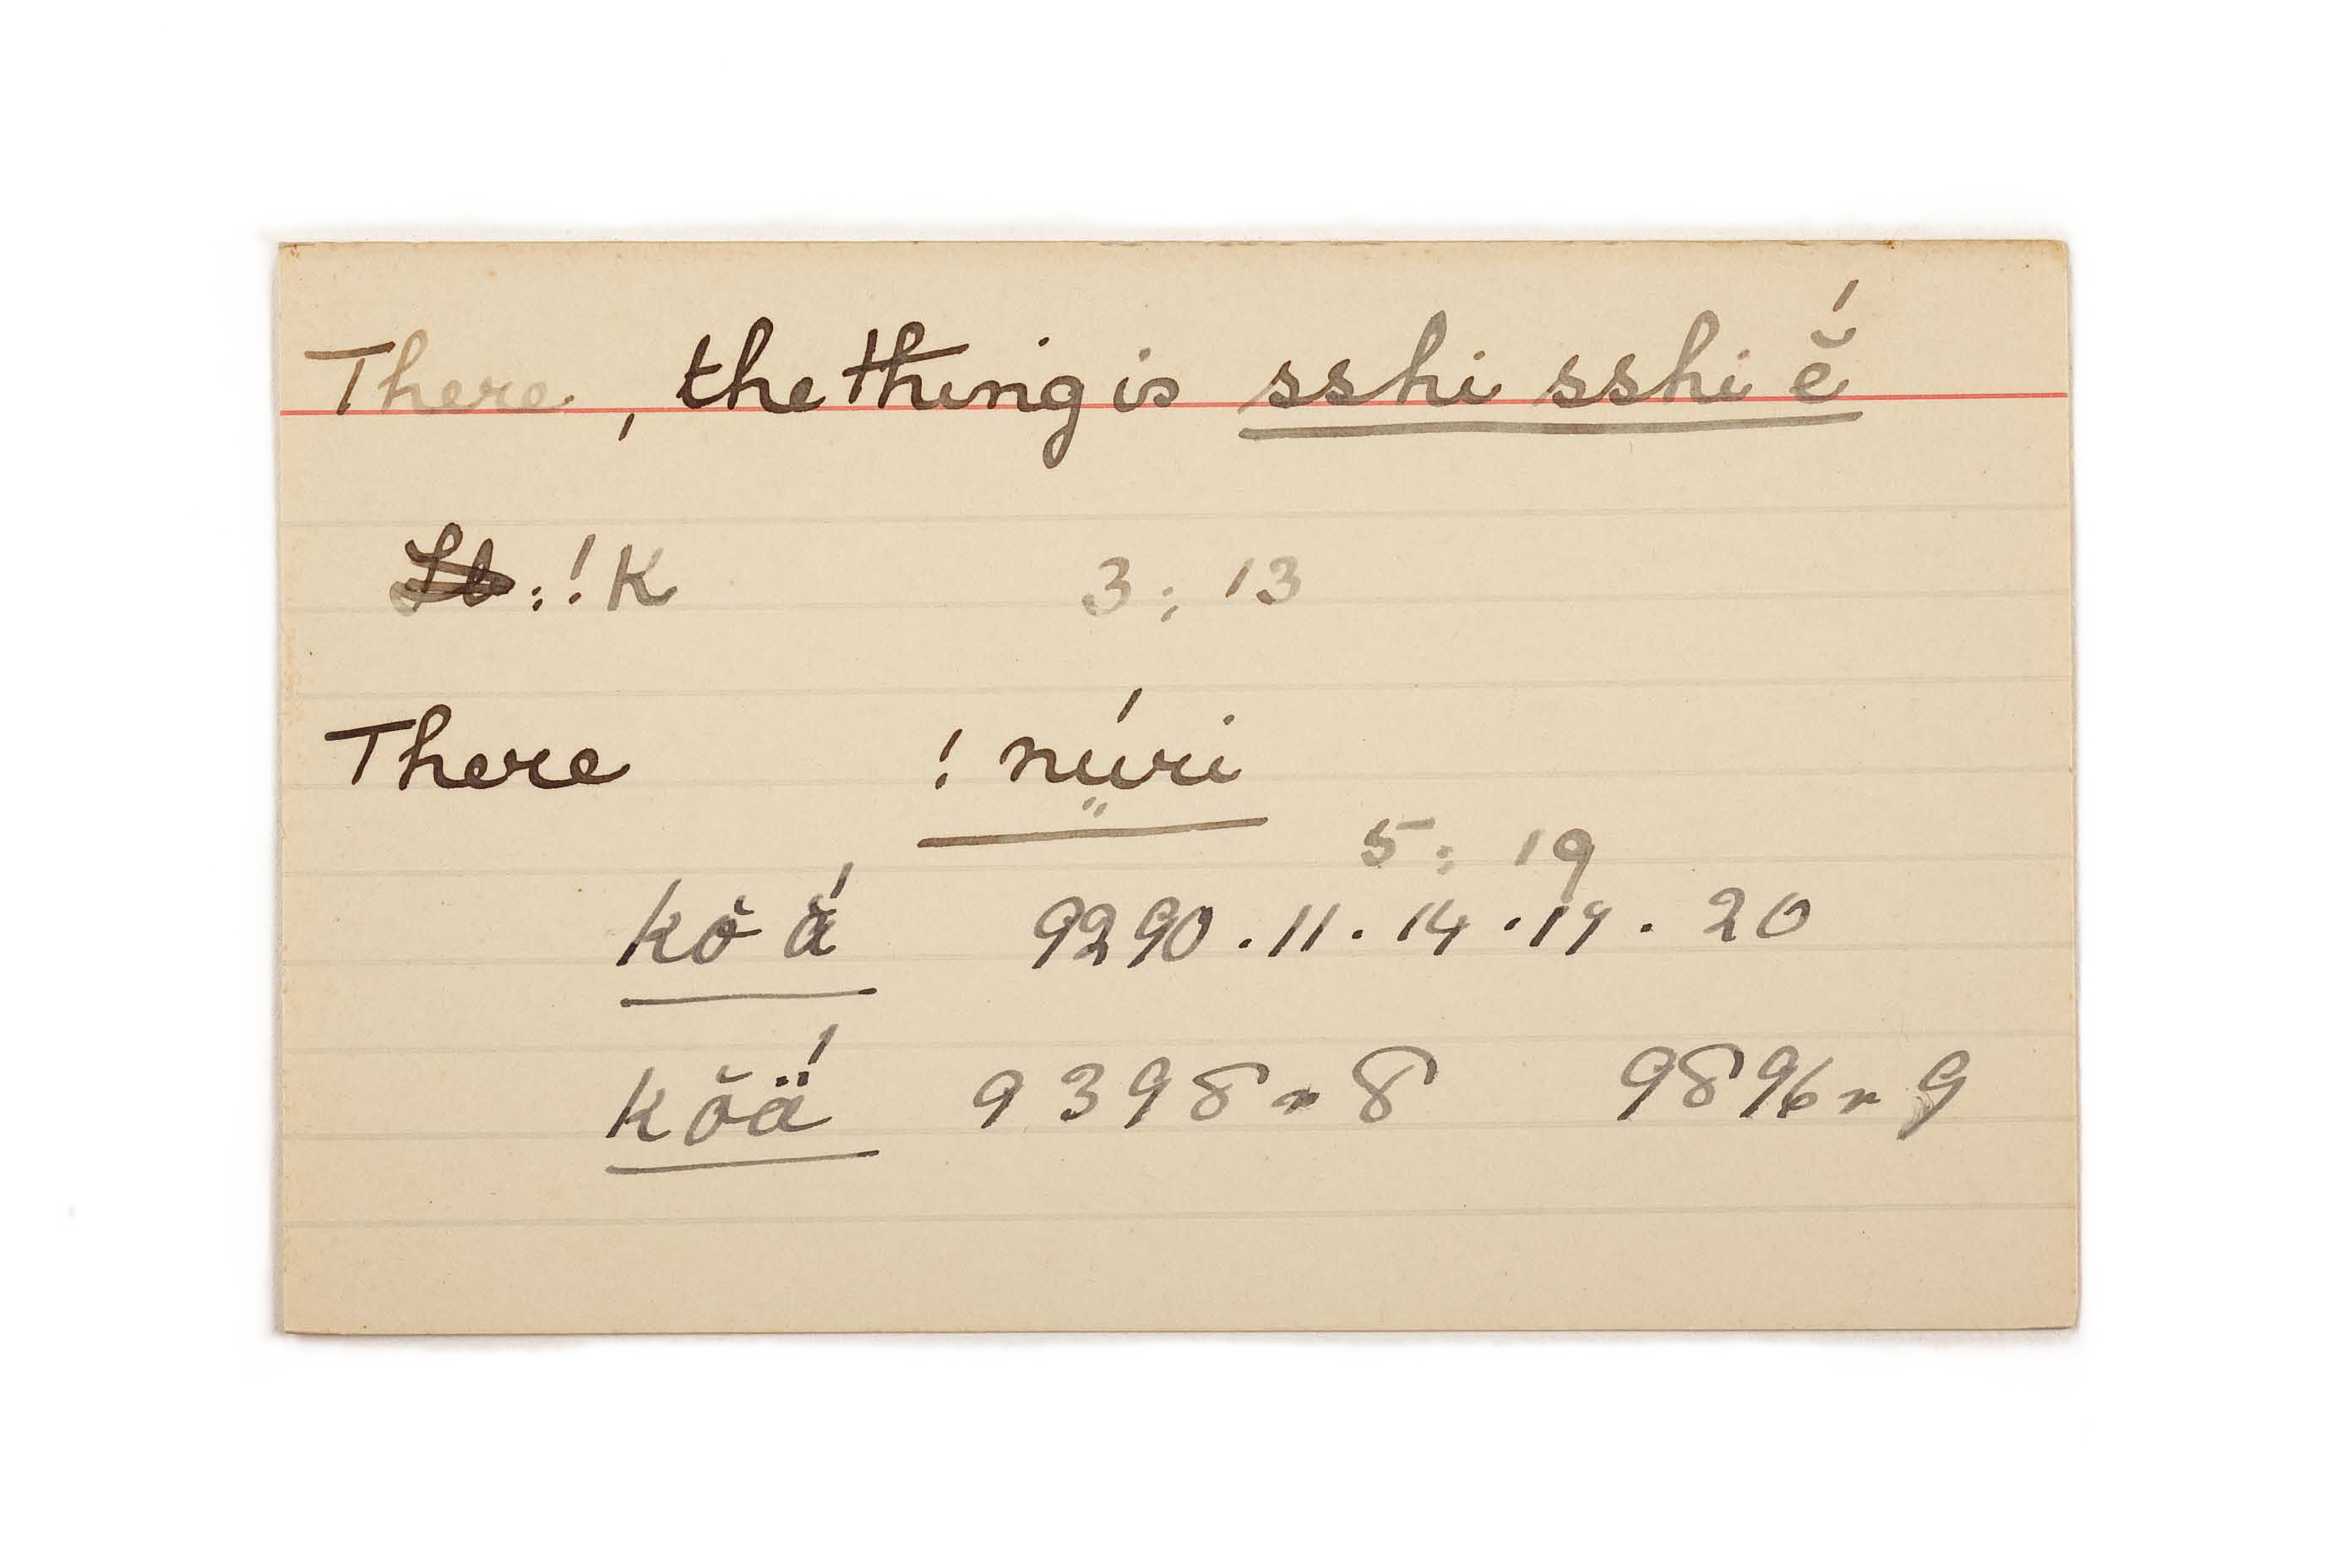 There, the thing is sshi sshi ĕ́
:!K 3: 13
There !nṳ́ri
5: 19
kŏ ắ 9290.11.14.19.20
kŏä́ 9398 r 8 9896 r 9